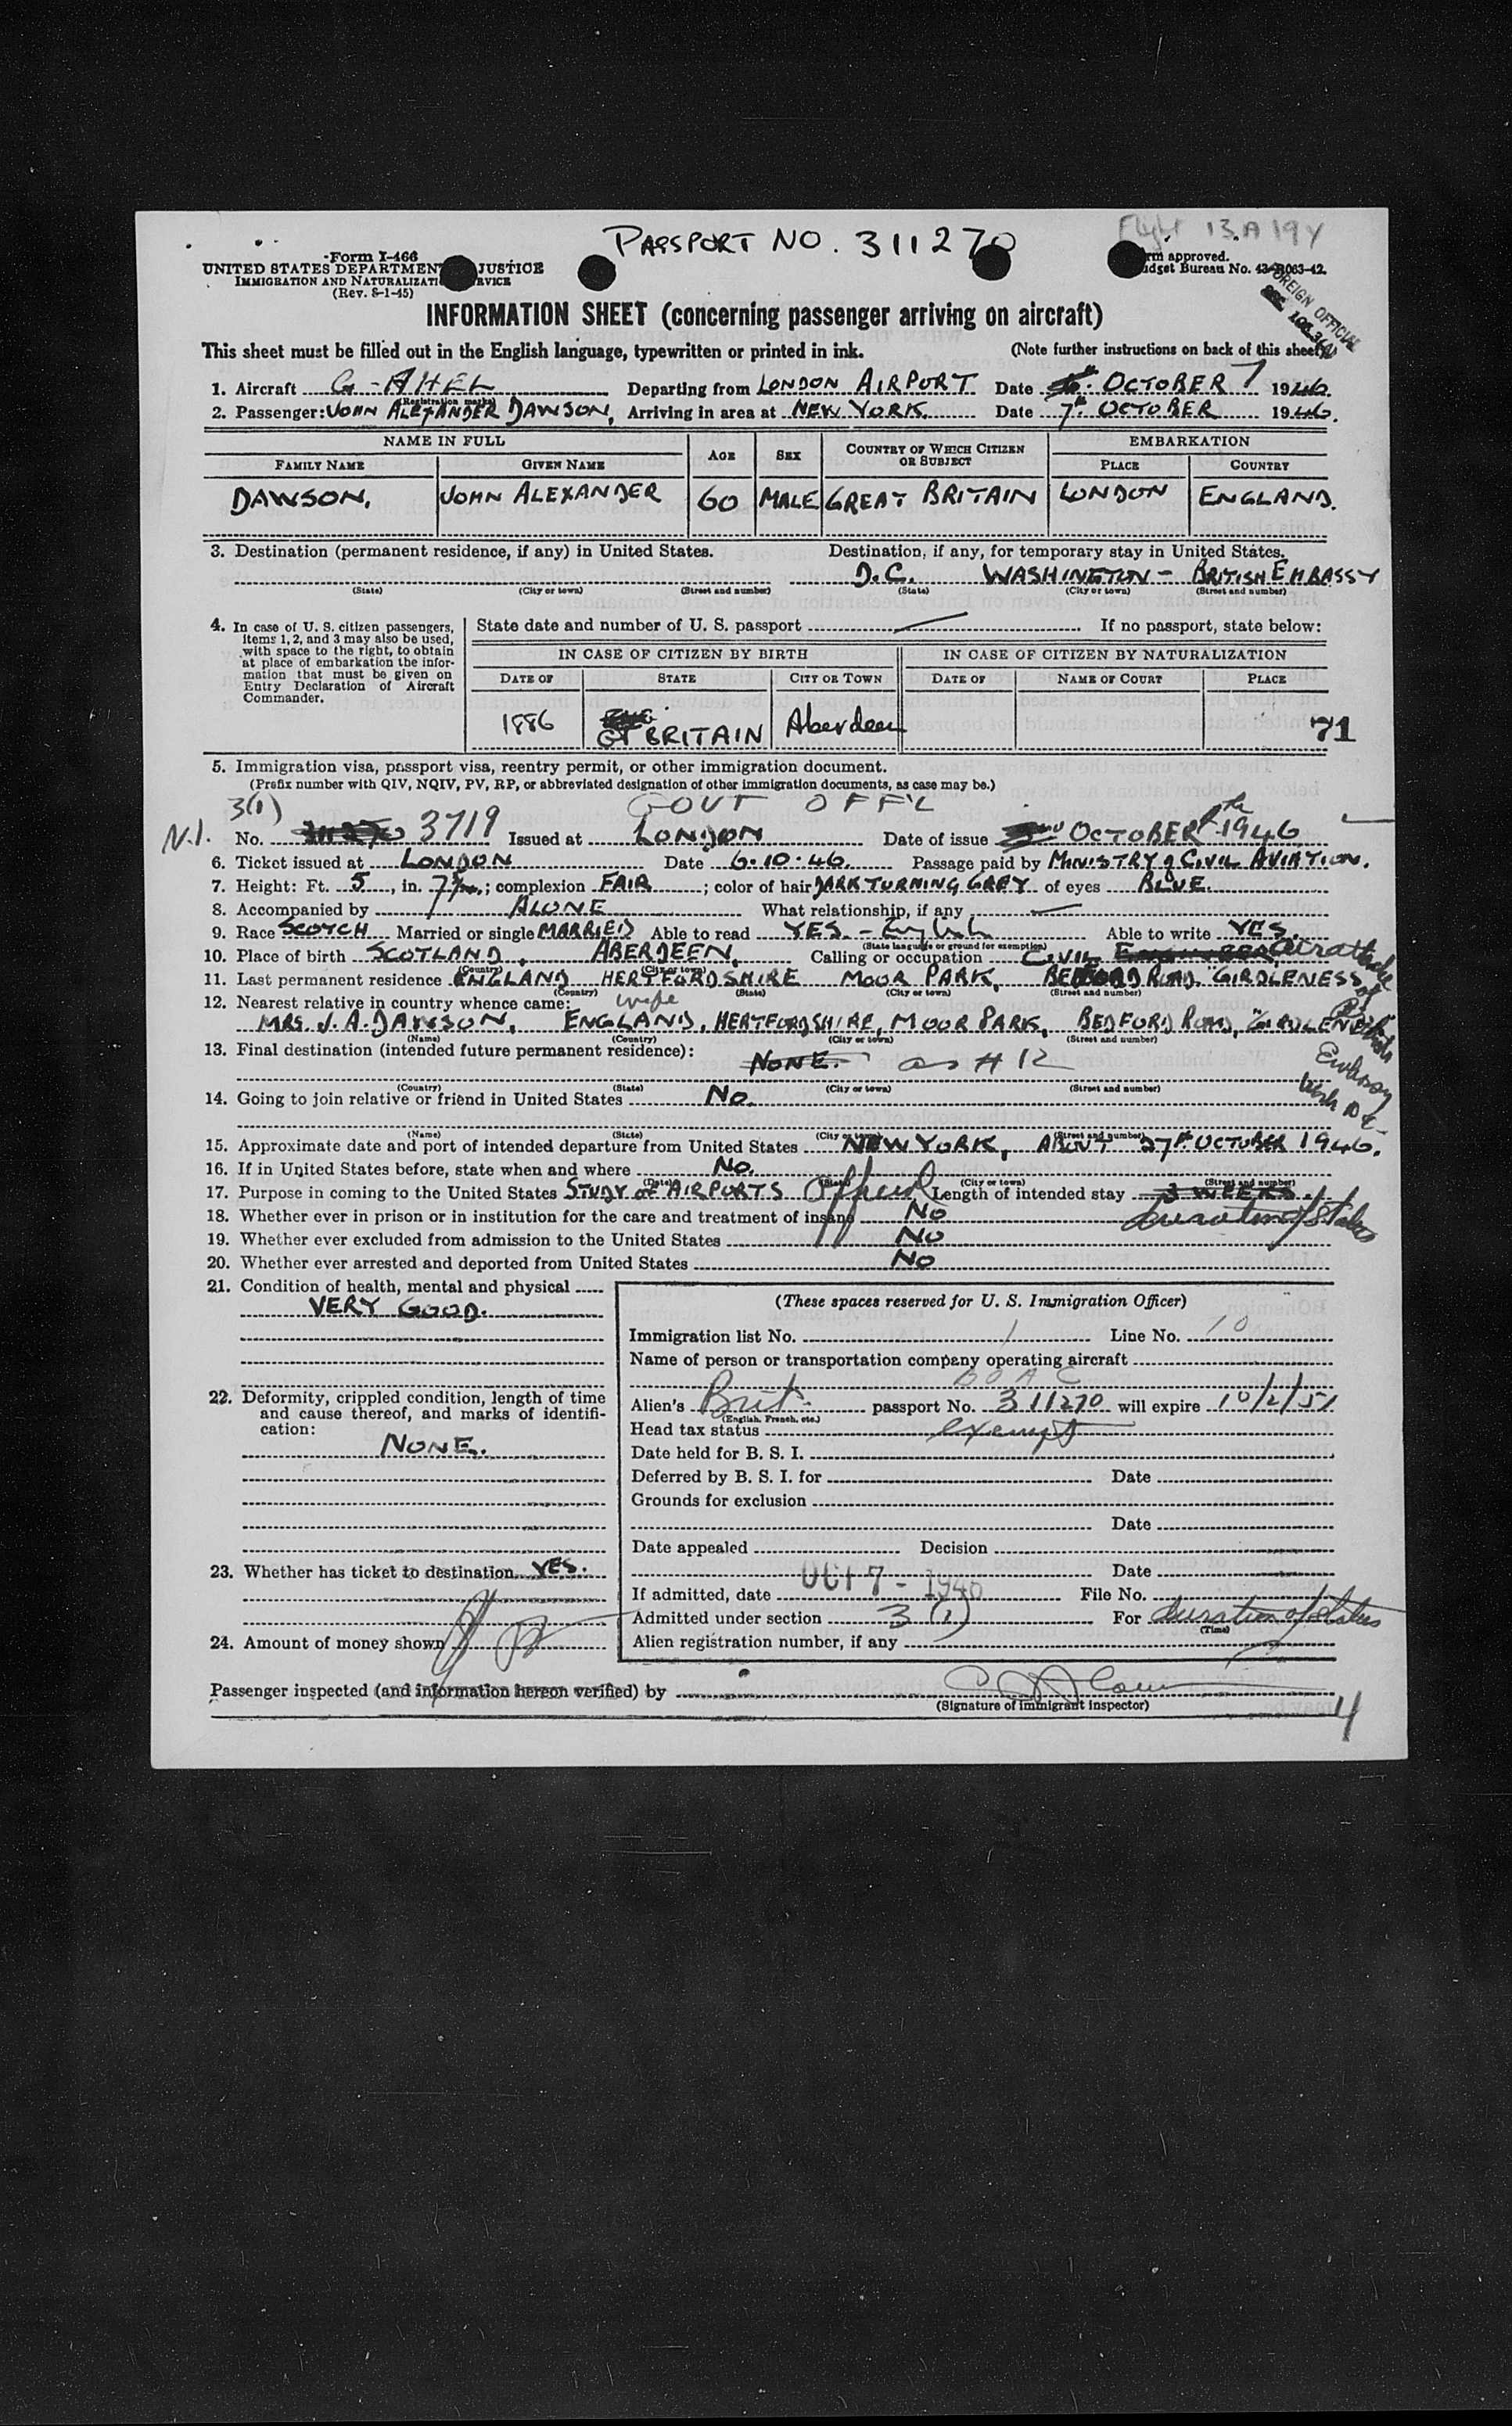 PASSPORT NO. 311270
Flight 13 A 19Y
Form I-466
UNITED STATES DEPARTMENT JUSTICE
IMMIGRATION AND NATURALIZATI RVICE
(Rev. 8-1-45)
rm approved.
dget Bureau No. 43-R063-42.
FOREIGN OFFICIAL
INFORMATION SHEET (concerning passenger arriving on aircraft)
This sheet must be filled out in the English language, typewritten or printed in ink. (Note further instructions on back of this sheet)
1. Aircraft G-AHEL Departing from LONDON AIRPORT Date OCTOBER 7 1946.
(Registration marks)
2. Passenger: JOHN ALEXANDER DAWSON, Arriving in area at NEW YORK Date 7th OCTOBER 1946.
NAME IN FULL AGE SEX COUNTRY OF WHICH CITIZEN OR SUBJECT EMBARKATION
FAMILY NAME GIVEN NAME PLACE COUNTRY
DAWSON, JOHN ALEXANDER 60 MALE GREAT BRITAIN LONDON ENGLAND.
3. Destination (permanent residence, if any) in United States. Destination, if any, for temporary stay in United States.
D.C. WASHINGTON - BRITISH EMBASSY
(State) (City or town) (Street and number) (State) (City or town) (Street and number)
4. In case of U. S. citizen passengers, items 1, 2, and 3 may also be used, with space to the right, to obtain at place of embarkation the information that must be given on Entry Declaration of Aircraft Commander.
State date and number of U. S. passport If no passport, state below:
IN CASE OF CITIZEN BY BIRTH IN CASE OF CITIZEN BY NATURALIZATION
DATE OF STATE CITY OR TOWN DATE OF NAME OF COURT PLACE
1886 GT BRITAIN Aberdeen 71
5. Immigration visa, passport visa, reentry permit, or other immigration document.
(Prefix number with QIV, NQIV, PV, RP, or abbreviated designation of other immigration documents, as case may be.)
3(1) GOVT OFF'L
N.I. No. 3719 Issued at LONDON Date of issue OCTOBER 1946
6. Ticket issued at LONDON Date 6.10.46. Passage paid by MINISTRY of CIVIL AVIATION.
7. Height: Ft. 5, in. 7½; complexion FAIR; color of hair DARK TURNING GREY of eyes BLUE.
8. Accompanied by ALONE What relationship, if any
9. Race SCOTCH Married or single MARRIED Able to read YES. - English Able to write YES.
(State language or ground for exemption)
10. Place of birth SCOTLAND, ABERDEEN, Calling or occupation CIVIL
(Country) (City or town)
11. Last permanent residence ENGLAND HERTFORDSHIRE MOOR PARK, BEDFORD ROAD. "GIRDLENESS
(Country) (State) (City or town) (Street and number)
12. Nearest relative in country whence came: wife
MRS. J. A. DAWSON, ENGLAND, HERTFORDSHIRE, MOOR PARK, BEDFORD ROAD,
(Name) (Country) (City or town) (Street and number)
Embassy
Wash DC
13. Final destination (intended future permanent residence):
NONE. as # 12
(Country) (State) (City or town) (Street and number)
14. Going to join relative or friend in United States No.
(Name) (State) (City or town) (Street and number)
15. Approximate date and port of intended departure from United States NEW YORK, ABOUT 27th OCTOBER 1946.
16. If in United States before, state when and where No.
(Date) (State) (City or town) (Street and number)
17. Purpose in coming to the United States STUDY of AIRPORTS Official Length of intended stay 3 WEEKS.
duration of status
18. Whether ever in prison or in institution for the care and treatment of insane No
19. Whether ever excluded from admission to the United States No
20. Whether ever arrested and deported from United States No
21. Condition of health, mental and physical
VERY GOOD.
22. Deformity, crippled condition, length of time and cause thereof, and marks of identification:
NONE.
23. Whether has ticket to destination YES.
24. Amount of money shown
(These spaces reserved for U. S. Immigration Officer)
Immigration list No. 1 Line No. 10
Name of person or transportation company operating aircraft
BOAC
Alien's Brit. passport No. 311270 will expire 10/2/51
(English, French, etc.)
Head tax status exempt
Date held for B. S. I.
Deferred by B. S. I. for Date
Grounds for exclusion
Date
Date appealed Decision
Date
If admitted, date OCT 7 - 1946 File No.
Admitted under section 3 (1) For duration of status
(Time)
Alien registration number, if any
Passenger inspected (and information hereon verified) by
(Signature of immigrant inspector)
4